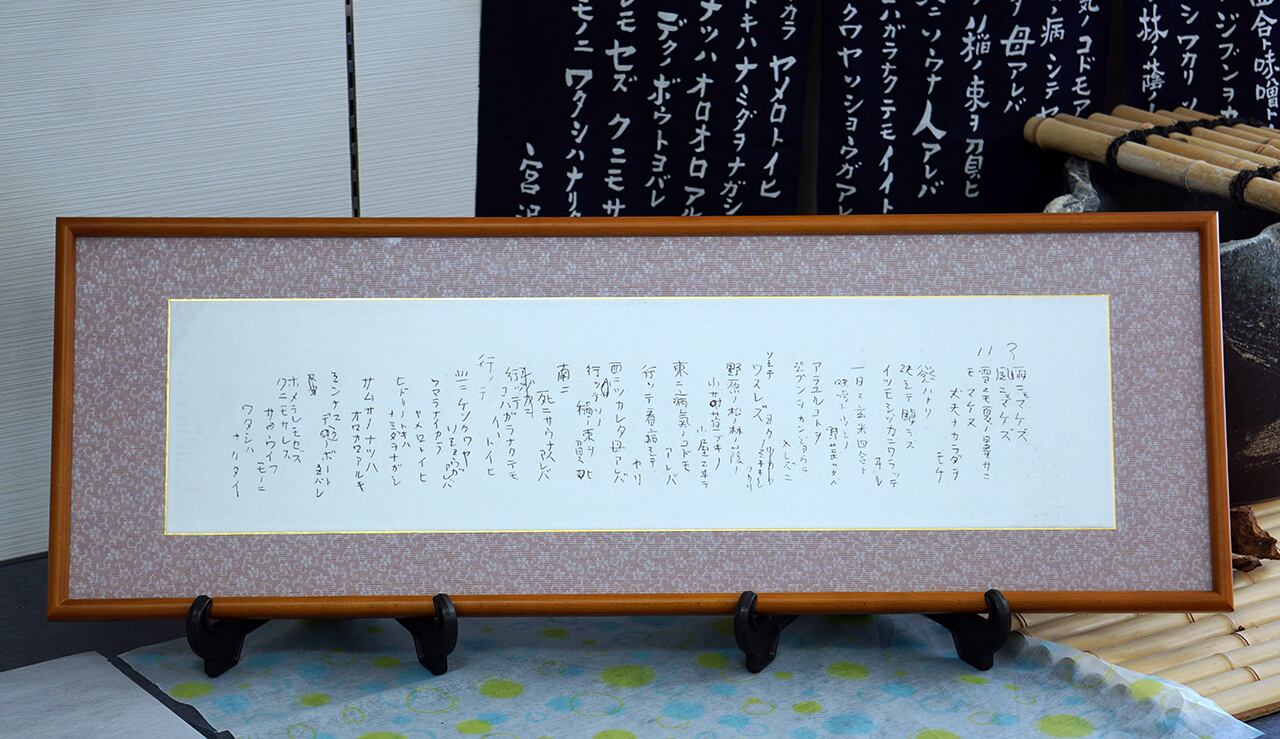 四合ト味噌ト
ジブンヲカ
シワカリソ
林ノ蔭ノ
気ノコドモア
病シテヤ
母アレバ
ノ稲ノ束ヲ負ヒ
ニソウナ人アレバ
コハガラナクテモイイト
クワヤソショウガアレ
カラヤメロトイヒ
トキハナミダヲナガシ
ナツハオロオロアル
デクノボウトヨバレ
レモセズクニモサ
モノニワタシハナリタ
宮沢
11 3
雨ニモマケズ
風ニモマケズ
雪ニモ夏ノ暑サニ
モマケヌ
丈夫ナカラダヲ
モチ
慾ハナク
決シテ瞋ラズ
イツモシヅカニワラッテ
ヰル
一日ニ玄米四合ト
味噌ト少シノ
野菜ヲタベ
アラユルコトヲ
ジブンヲカンジョウニ
入レズニ
ヨクミキキシ
ワカリ
ソシテ
ワスレズ
野原ノ松ノ林ノ蔭ノ
小サナ萓ブキノ
小屋ニヰテ
東ニ病気ノコドモ
アレバ
行ッテ看病シテ
ヤリ
西ニツカレタ母アレバ
行ッテソノ
稲ノ束ヲ負ヒ
南ニ
死ニサウナ人
アレバ
行ッテ
コハガラナクテモ
イヽトイヒ
行ッテ
北ニケンクヮヤ
ソショウガ
アレバ
ツマラナイカラ
ヤメロトイヒ
ヒドリノトキハ
ナミダヲナガシ
サムサノナツハ
オロオロアルキ
ミンナニ
デクノボート
ヨバレ
ホメラレモセズ
クニモサレズ
サウイフ
モノニ
ワタシハ
ナリタイ